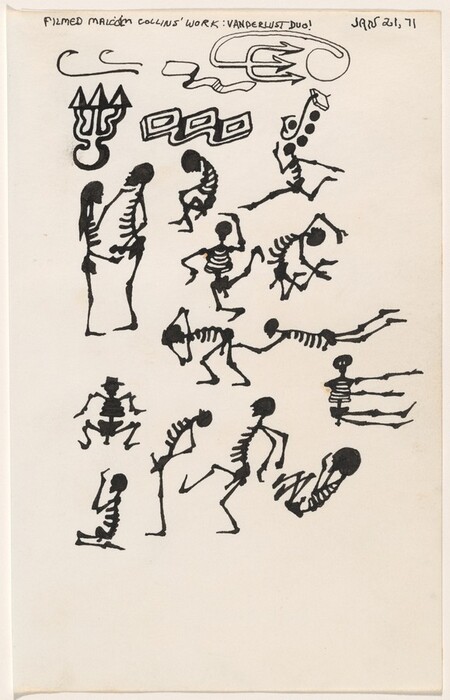 FILMED MALCOLM COLLINS' WORK: VANDERLUST DUO! JAN 21, 71